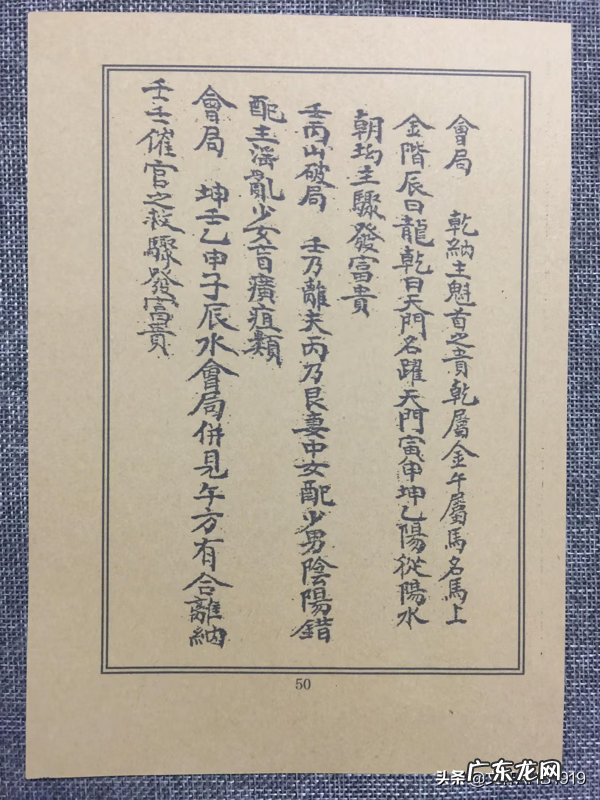 會局　乾納主魁首之貴乾屬金午屬馬名馬上
金階辰曰龍乾曰天門名躍天門寅申坤乙陽從陽水
朝均主驟發富貴
壬丙山破局　壬乃離夫丙乃艮妻中女配少男陰陽錯
配主淫亂少女盲癀疽類
會局　坤壬乙申子辰水會局併見午方有合離納
壬壬催官之救驟發富貴
50
头条
广东龙网
919